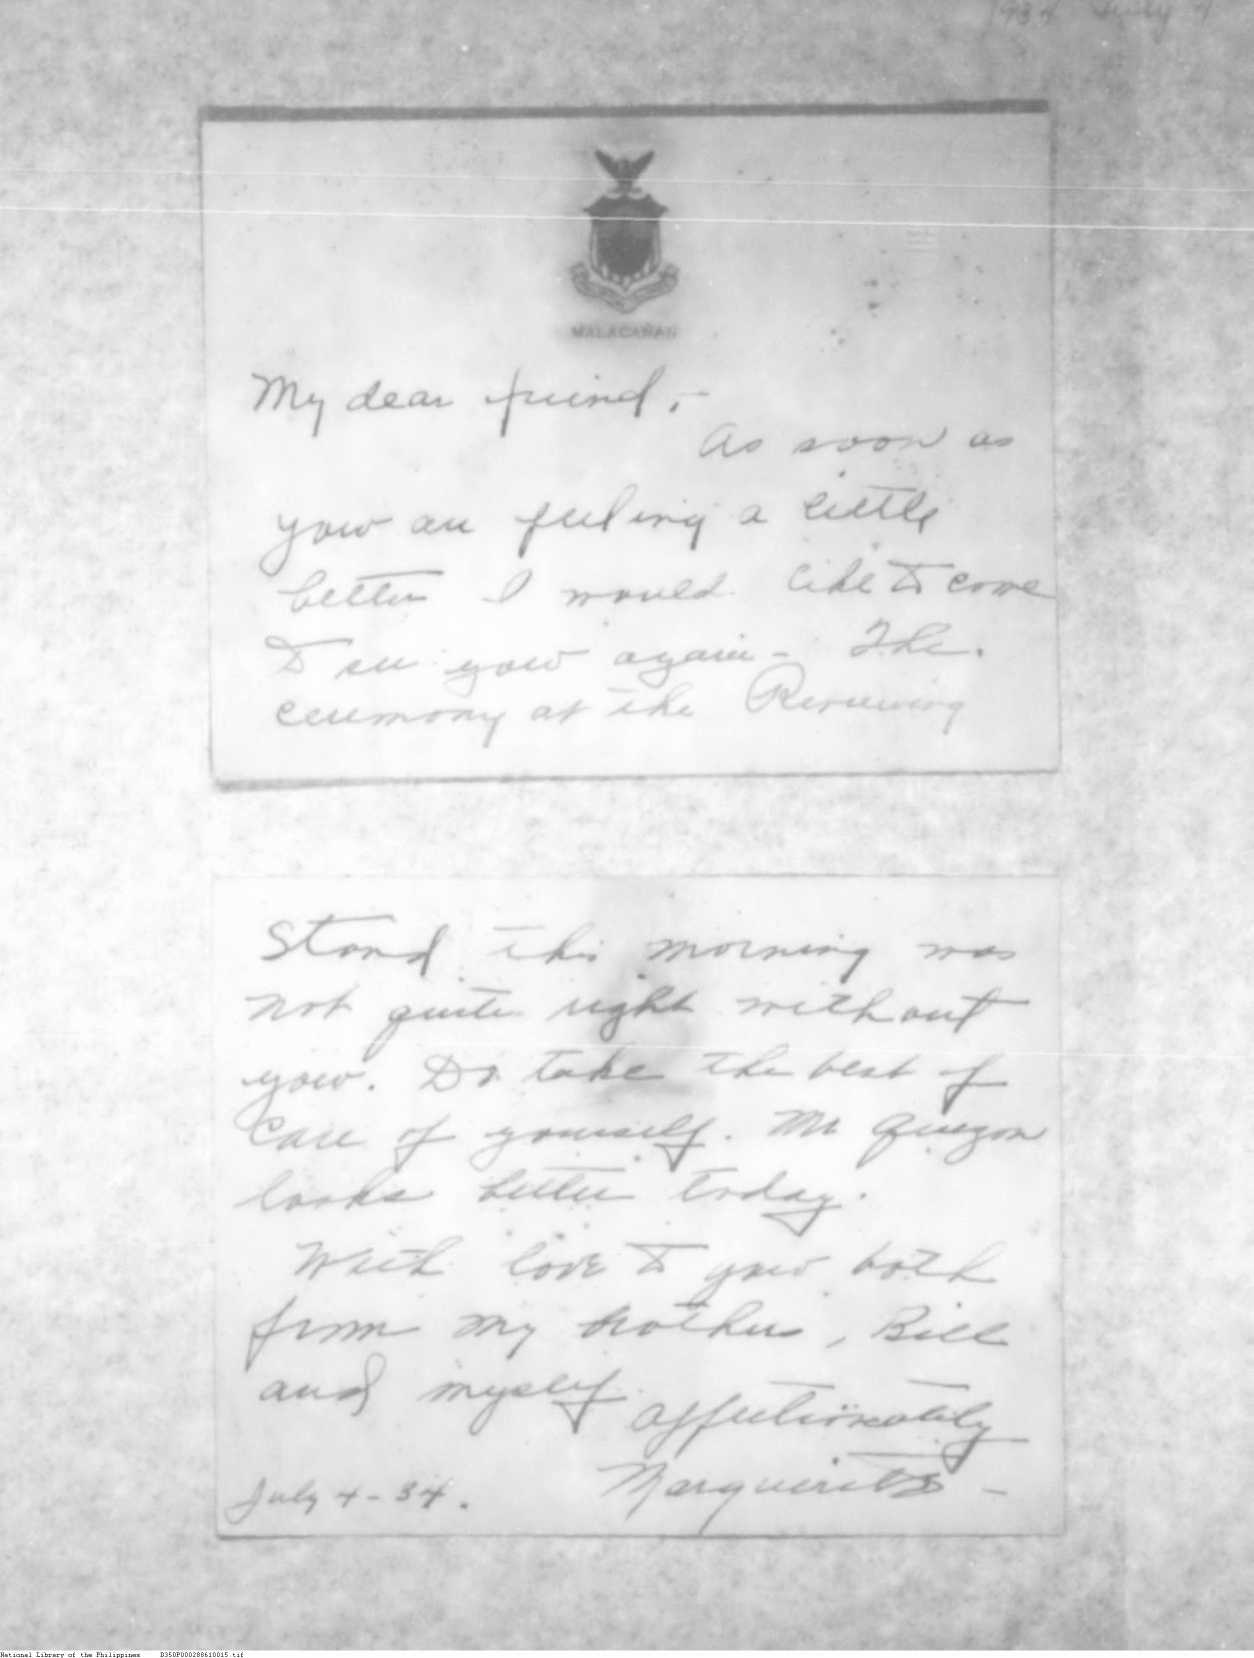 1934 July 4
MALACAÑAN
My dear friend,-
As soon as
you are feeling a little
better I would like to come
to see you again - The
ceremony at the Reviewing
Stand this morning was
not quite right without
you. Do take the best of
care of yourself. Mr Quezon
looks better today.
With love to you both
from my brothers, Bill
and myself
affectionately
Marguerite -
July 4 - 34.
National Library of the Philippines D350P000288610015.tif